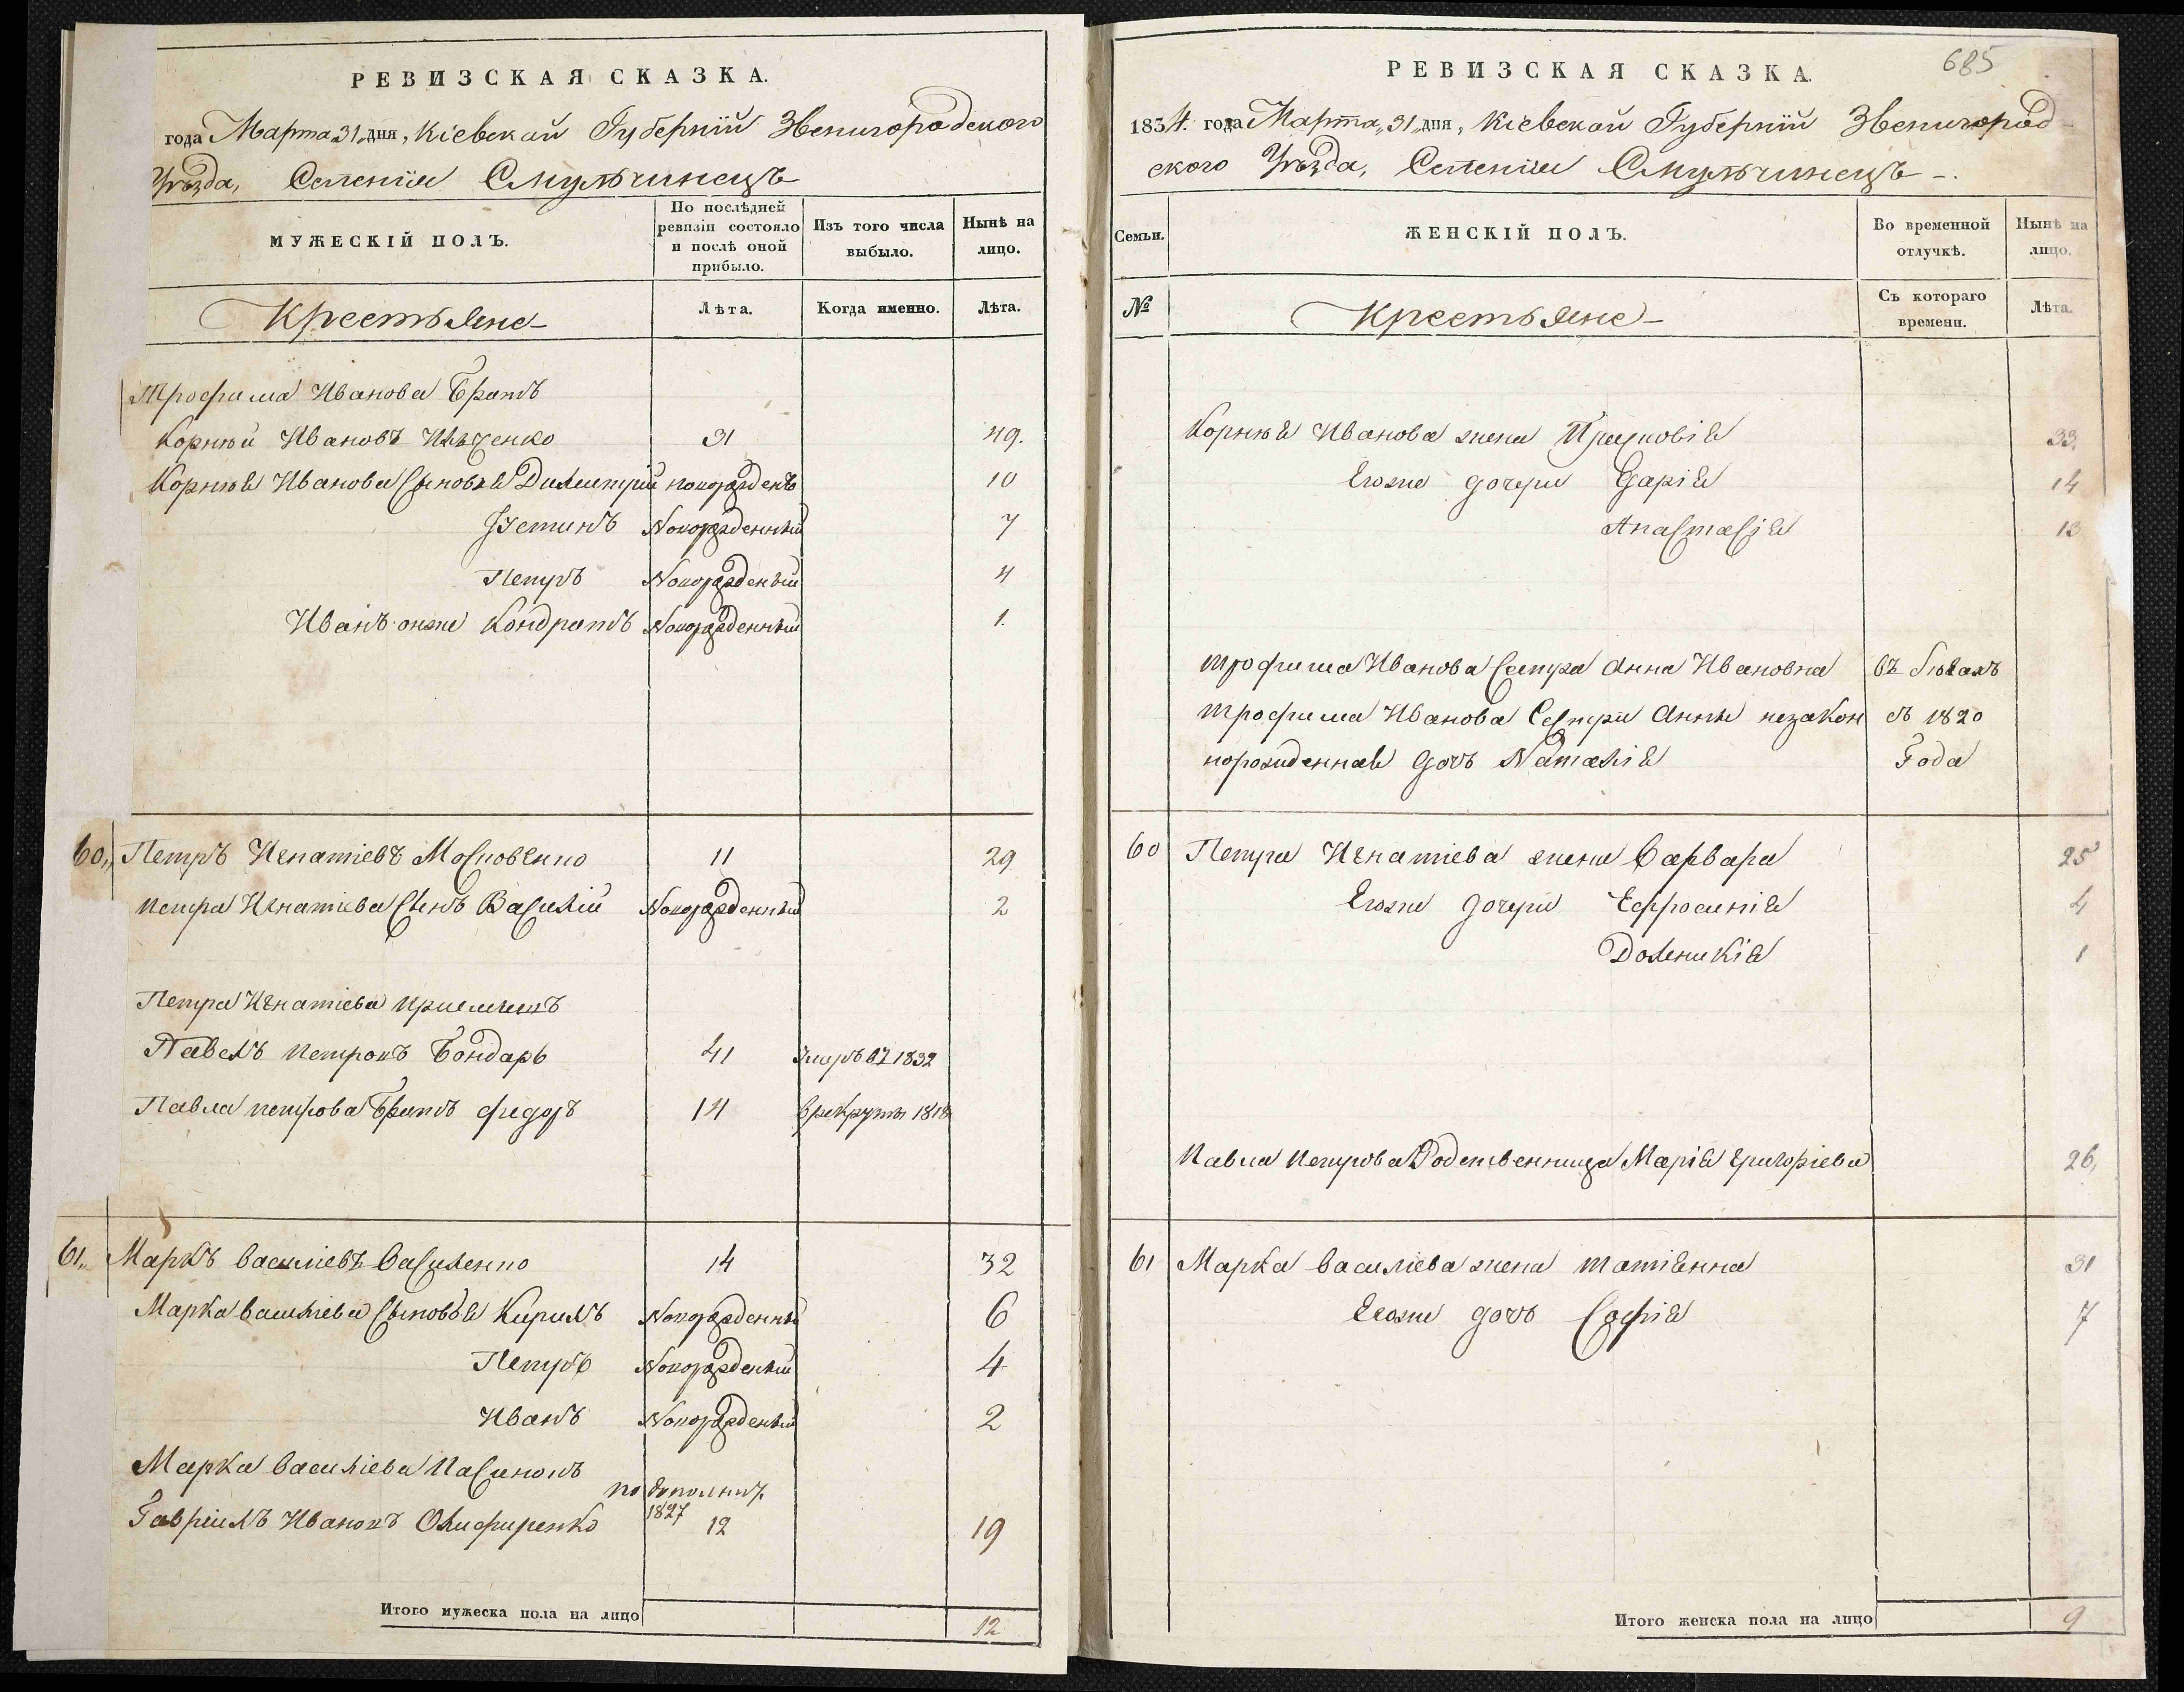 РЕВИЗСКАЯ СКАЗКА.
года Марта 31 дня, Кіевской Губерніи Звенигородского
Уѣзда, Селеніи Смульчинецъ
МУЖЕСКІЙ ПОЛЪ.
По послѣдней ревизіи состояло и послѣ оной прибыло.
Изъ того числа выбыло.
Нынѣ на лицо.
Крестьяне
Лѣта.
Когда именно.
Лѣта.
Трофима Иванова Братъ
Корнѣй Ивановъ 31 49.
Корнѣя Иванова Сыновья Димитрій новорожденъ 10
Устинъ Новорожденный 7
Петръ Новорожденый 4
Иванъ онже Кондратъ Новорожденный 1.
60,, Петръ Игнатіевъ Московенко 11 29
Петра Игнатіева Сынъ Василій Новорожденный 2
Петра Игнатіева приемышъ
Павелъ Петровъ Бондарь 41 Умеръ въ 1832
Павла Петрова Братъ Федоръ 14 в рекруты 1818
61,, Маркъ Василіевъ Василенко 14 32
Марка Василіева Сыновья Кирилъ Новорожденный 6
Петръ Новорожденый 4
Иванъ Новорожденый 2
Марка Василіева Пасинокъ
по дополнит.
1827
Гавріилъ Ивановъ Олифиренко 12 19
Итого мужеска пола на лицо 12
685
РЕВИЗСКАЯ СКАЗКА.
1834. года Марта,, 31 дня, Кіевской Губерніи Звенигород
ского Уѣзда, Селеніи Смульчинецъ -.
Семьи.
ЖЕНСКІЙ ПОЛЪ.
Во временной отлучкѣ.
Нынѣ на лицо.
№
Крестьяне
Съ котораго времени.
Лѣта.
Корнѣя Иванова жена Прасковія 33.
Егоже дочери Дарія 14
Анастасія 13
Трофима Иванова Сестра Анна Ивановна въ бѣгахъ
Трофима Иванова Сестри Анны незакон съ 1820
норожиденная дочь Наталія Года
60 Петра Игнатіева жена Варвара 25
Егоже дочери Ефросинія 4
Доменикія 1
Павла Петрова Родственница Марія Григоріева 26,
61 Марка Василіева жена Татіянна 31
Егоже дочь Софія 7
Итого женска пола на лицо 9